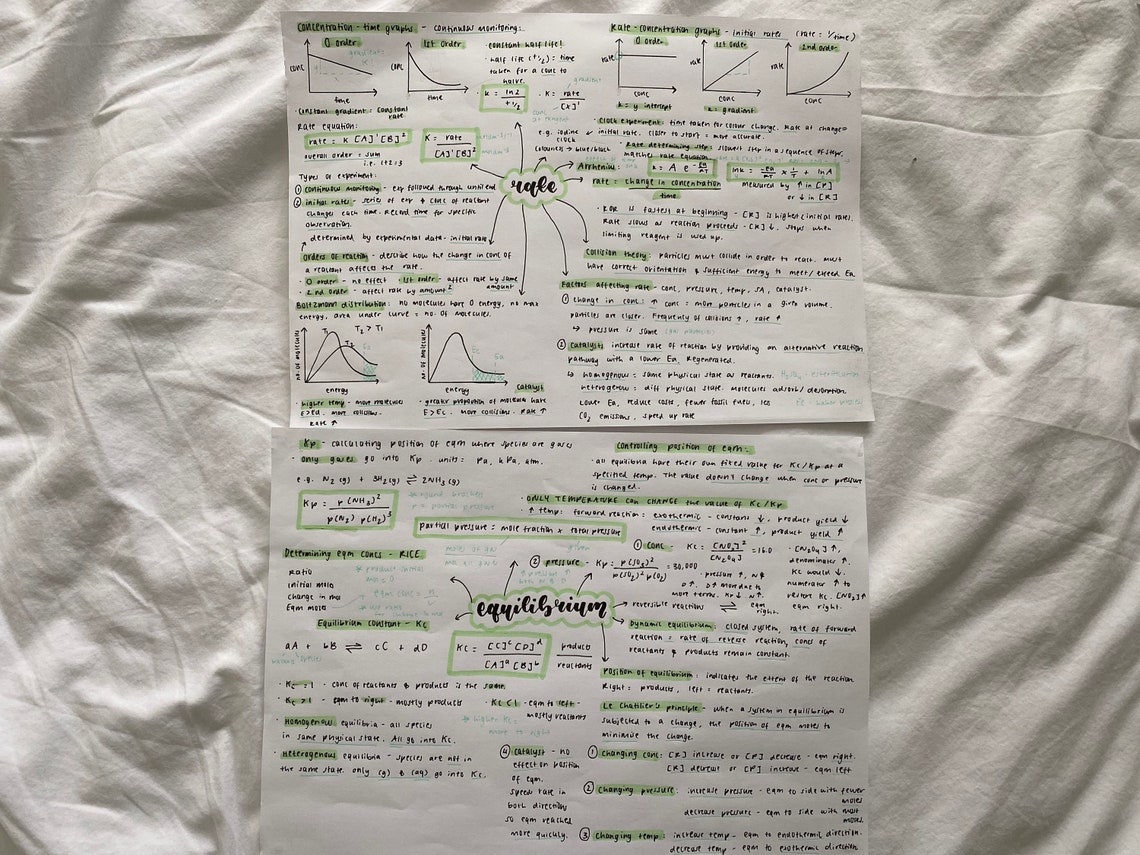 Concentration-time graphs - continuous monitoring:
0 order
gradient =
conc
time
1st order
conc
time
· constant half life!
· half life (t 1/2) = time
taken for a conc to
halve.
· k = ln 2 / t 1/2
· K = rate / [X]¹
Rate-concentration graphs - initial rates (rate = 1/time)
0 order
rate
conc
k = y intercept
1st order
rate
conc
k = gradient
gradient
2nd order
rate
conc
· constant gradient = constant
rate
Rate equation:
rate = K [A]¹ [B]²
overall order = sum
i.e. 1+2 = 3
K = rate / [A]¹ [B]²
Types of experiment:
① continuous monitoring - exp followed through until end
② initial rates - series of exp & conc of reactant
changes each time. Record time for specific
observation.
determined by experimental data - initial rate
orders of reaction - describe how the change in conc of
a reactant affects the rate.
· 0 order - no effect · 1st order - affect rate by same
amount
· 2nd order - affect rate by amount²
Boltzmann distribution: no molecules have 0 energy, no max
energy, area under curve = no. of molecules.
no. of molecules
T₁
T₂ > T₁
T₂
Ea
energy
no. of molecules
Ec
Ea
energy
catalyst
· higher temp - more molecules
E>Ea. more collisions.
Rate ↑
· greater proportion of molecules have
E > Ec. more collisions. Rate ↑
rate
· Clock experiment: time taken for colour change. Rate at change =
e.g. iodine clock
initial rate. closer to start = more accurate.
colourless → blue/black
· Rate determining step: slowest step in a sequence of steps,
matches rate equation
Arrhenius:
k = A e -Ea/RT
ln k = -Ea/R × 1/T + ln A
rate = change in concentration / time
measured by ↑ in [P]
or ↓ in [R]
· ROR is fastest at beginning - [R] is highest (initial rates).
Rate slows as reaction proceeds - [R] ↓. stops when
limiting reagent is used up.
Collision theory: particles must collide in order to react. must
have correct orientation & sufficient energy to meet/exceed Ea
Factors affecting rate - conc, pressure, temp, SA, catalyst.
① change in conc: ↑ conc = more particles in a given volume.
particles are closer. Frequency of collisions ↑, rate ↑
↳ pressure is same (gas particles)
② Catalyst: increase rate of reaction by providing an alternative reaction
pathway with a lower Ea. Regenerated.
↳ homogenous = same physical state as reactants.
heterogenous = diff physical state. molecules adsorb/desorption
Lower Ea, reduce costs, fewer fossil fuels, less
CO₂ emissions, speed up rate
Kp - calculating position of eqm where species are gases
· only gases go into Kp. units = pa, kPa, atm.
e.g. N₂(g) + 3H₂(g) ⇌ 2NH₃(g)
Kp = p(NH₃)² / p(N₂) p(H₂)³
p = partial pressure
partial pressure = mole fraction × total pressure
given
Controlling position of eqm:
· all equilibria have their own fixed value for Kc/Kp at a
specified temp. The value doesn't change when conc or pressure
is changed.
· ONLY TEMPERATURE can CHANGE the value of Kc/Kp
· ↑ temp: forward reaction: exothermic - constant ↓, product yield ↓
endothermic - constant ↑, product yield ↑
① conc - Kc = [NO₂]² / [N₂O₄] = 16.0
· [N₂O₄] ↑,
denominator ↑.
Kc would ↓.
numerator ↑ to
restore Kc. [NO₂] ↑
eqm right.
② pressure - Kp = p(SO₃)² / p(SO₂)² p(O₂) = 30,000
· pressure ↑, N &
D ↑. D ↑ more due to
more terms. Kp ↓. N ↑.
eqm right.
Determining eqm concs - RICE.
Ratio
Initial mols
Change in mol
Eqm mols
equilibrium
Equilibrium constant - Kc
aA + bB ⇌ cC + dD
Kc = [C]ᶜ [D]ᵈ / [A]ᵃ [B]ᵇ
products / reactants
· Kc = 1 - conc of reactants & products is the same.
· Kc > 1 - eqm to right - mostly products
· Kc < 1 - eqm to left -
mostly reactants
* higher Kc =
more to right
· Homogenous equilibria - all species
in same physical state. All go into Kc.
· Heterogenous equilibria - species are not in
the same state. only (g) & (aq) go into Kc.
reversible reaction ⇌
Dynamic equilibrium: closed system, rate of forward
reaction = rate of reverse reaction, concs of
reactants & products remain constant.
Position of equilibrium: indicates the extent of the reaction
Right = products, left = reactants.
Le Chatilier's principle - when a system in equilibrium is
subjected to a change, the position of eqm moves to
minimise the change.
① changing conc: [R] increase or [P] decrease - eqm right.
[R] decrease or [P] increase - eqm left
② Changing pressure: increase pressure - eqm to side with fewer
moles
decrease pressure - eqm to side with most
moles.
③ Changing temp: increase temp - eqm to endothermic direction.
decrease temp - eqm to exothermic direction
④ catalyst - no
effect on position
of eqm.
speeds rate in
both directions
so eqm reached
more quickly.